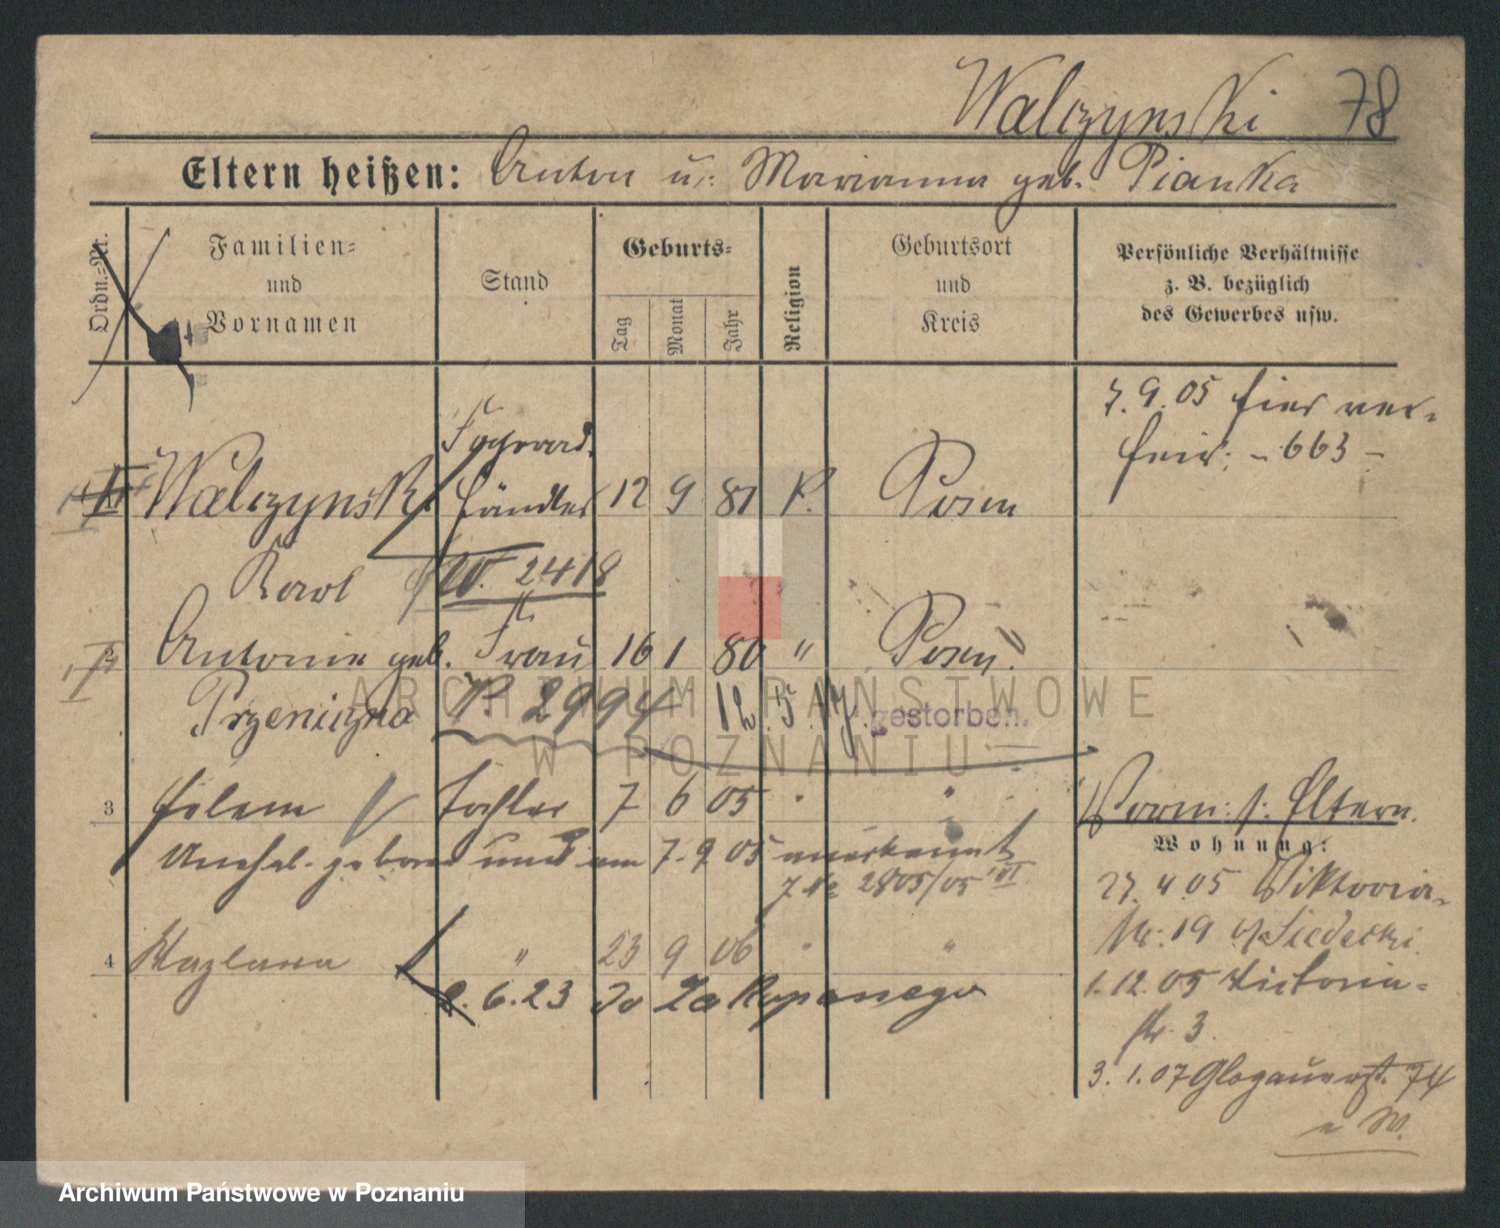 Walczynski 78
Eltern heißen: Anton u. Marianna geb. Pianka
Ordn.-Nr.
Familien-
und
Vornamen
Stand
Geburts-
Tag
Monat
Jahr
Religion
Geburtsort
und
Kreis
Persönliche Verhältnisse
z. B. bezüglich
des Gewerbes usw.
7.9.05 hier ver-
heir. - 663 -
Fahrrad
Walczynski händler 12 9 81 K. Posen
Karl W. 2418
Antonie geb. Frau 16 1 80 " Posen
Przeniczna P. 2994 12.5.17 gestorben.
3 Helene Tochter 7 6 05 " "
Vorm. s. Eltern.
Unehel. geboren und am 7.9.05 anerkannt
2805/05 VI
Wohnung:
27.4.05 Viktoria-
19 b/Siedecki
4 Kazlawa " 23 9 06 " "
2.6.23 do Zakopanego
1.12.05 Victoria-
str. 3
3.1.07 Glogauerst. 74
ARCHIWUM PAŃSTWOWE
W POZNANIU
Archiwum Państwowe w Poznaniu